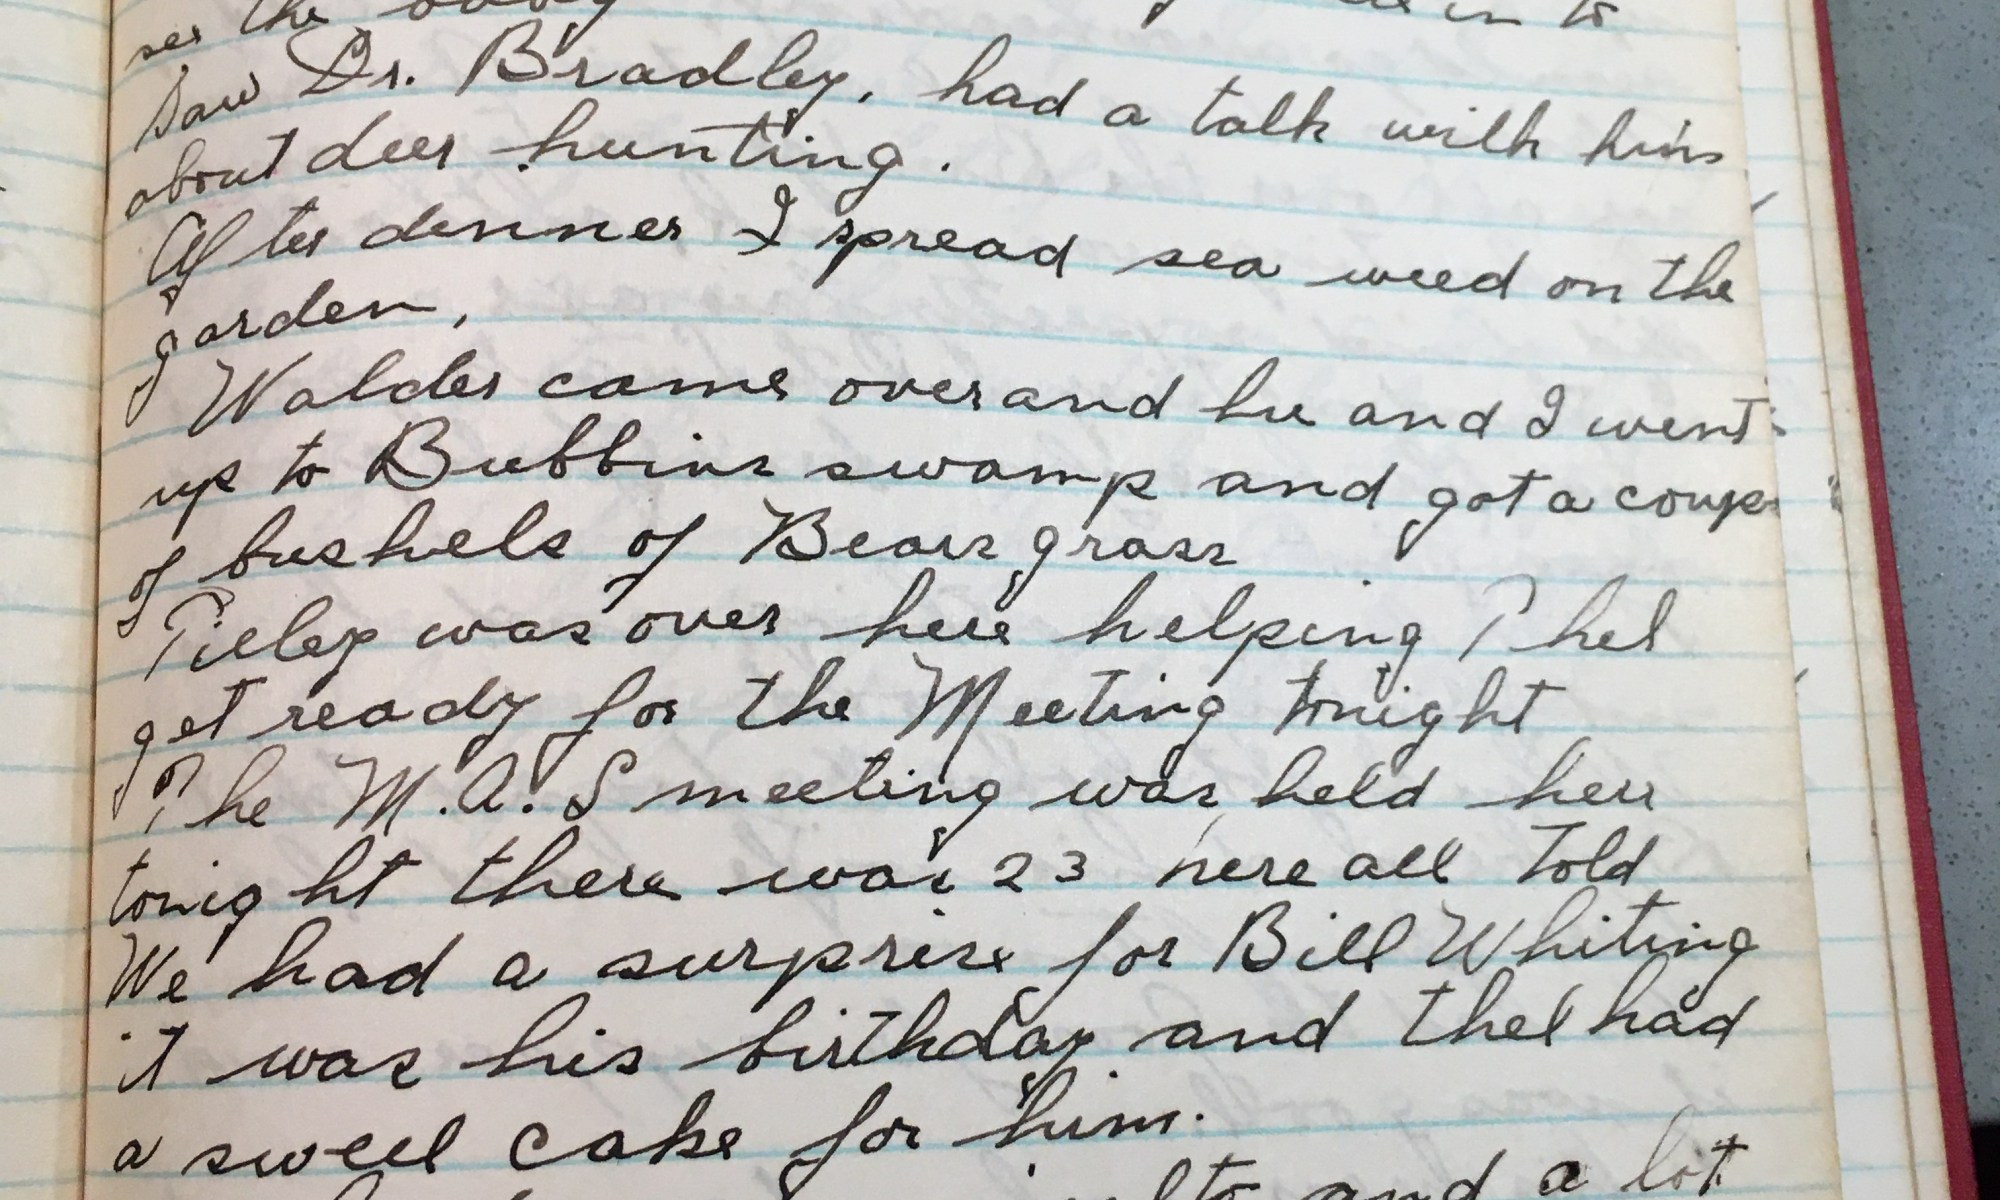 see the baby in to
Saw Dr. Bradley, had a talk with him
about deer hunting.
After dinner I spread sea weed on the
garden,
Walder came over and he and I went
up to Bubbins swamp and got a coup
of bushels of Bears grass
Tilley was over here helping Thel
get ready for the Meeting tonight
The M.A.S meeting was held here
tonight there was 23 here all told
We had a surprise for Bill Whiting
it was his birthday and Thel had
a sweel cake for him.
and a lot